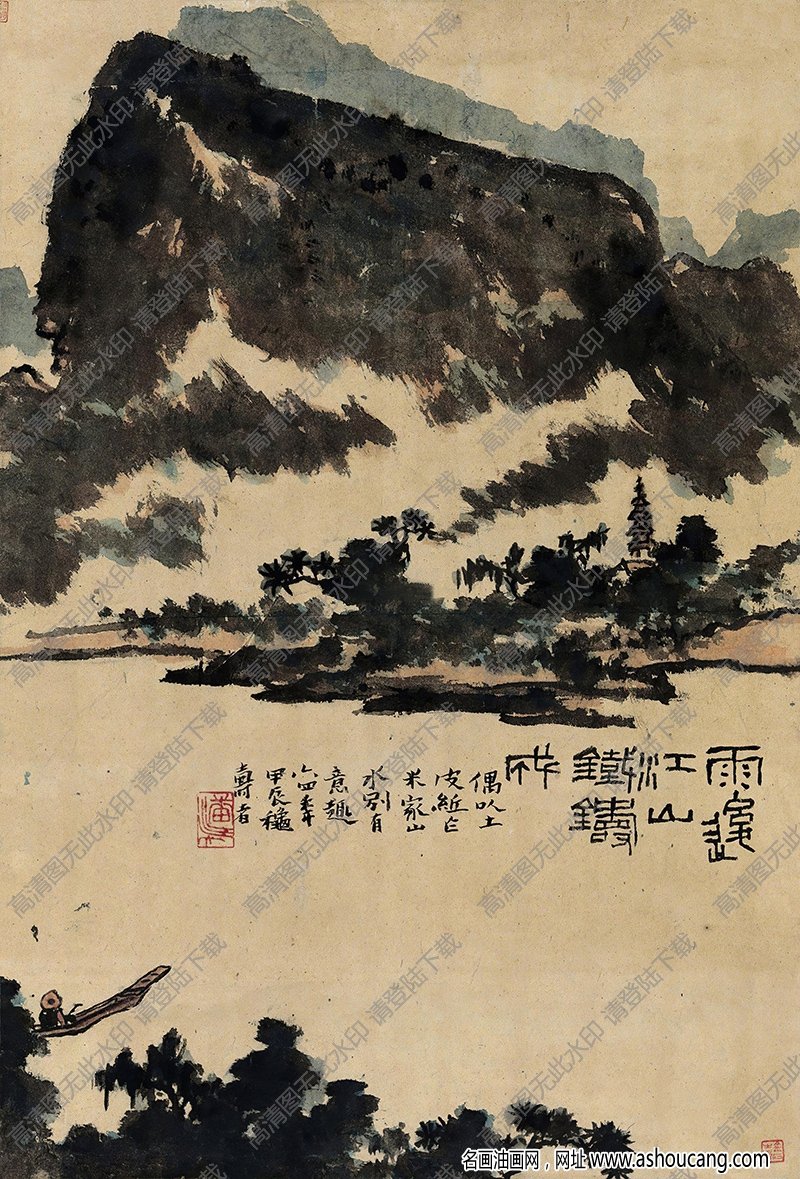 雨後
江山
鐵鑄
成
偶以土
皮紙乍
米家山
水別有
意趣
六四年
甲辰穐
壽者
高清图无此水印 请登陆下载
名画油画网，网址 www.ashoucang.com